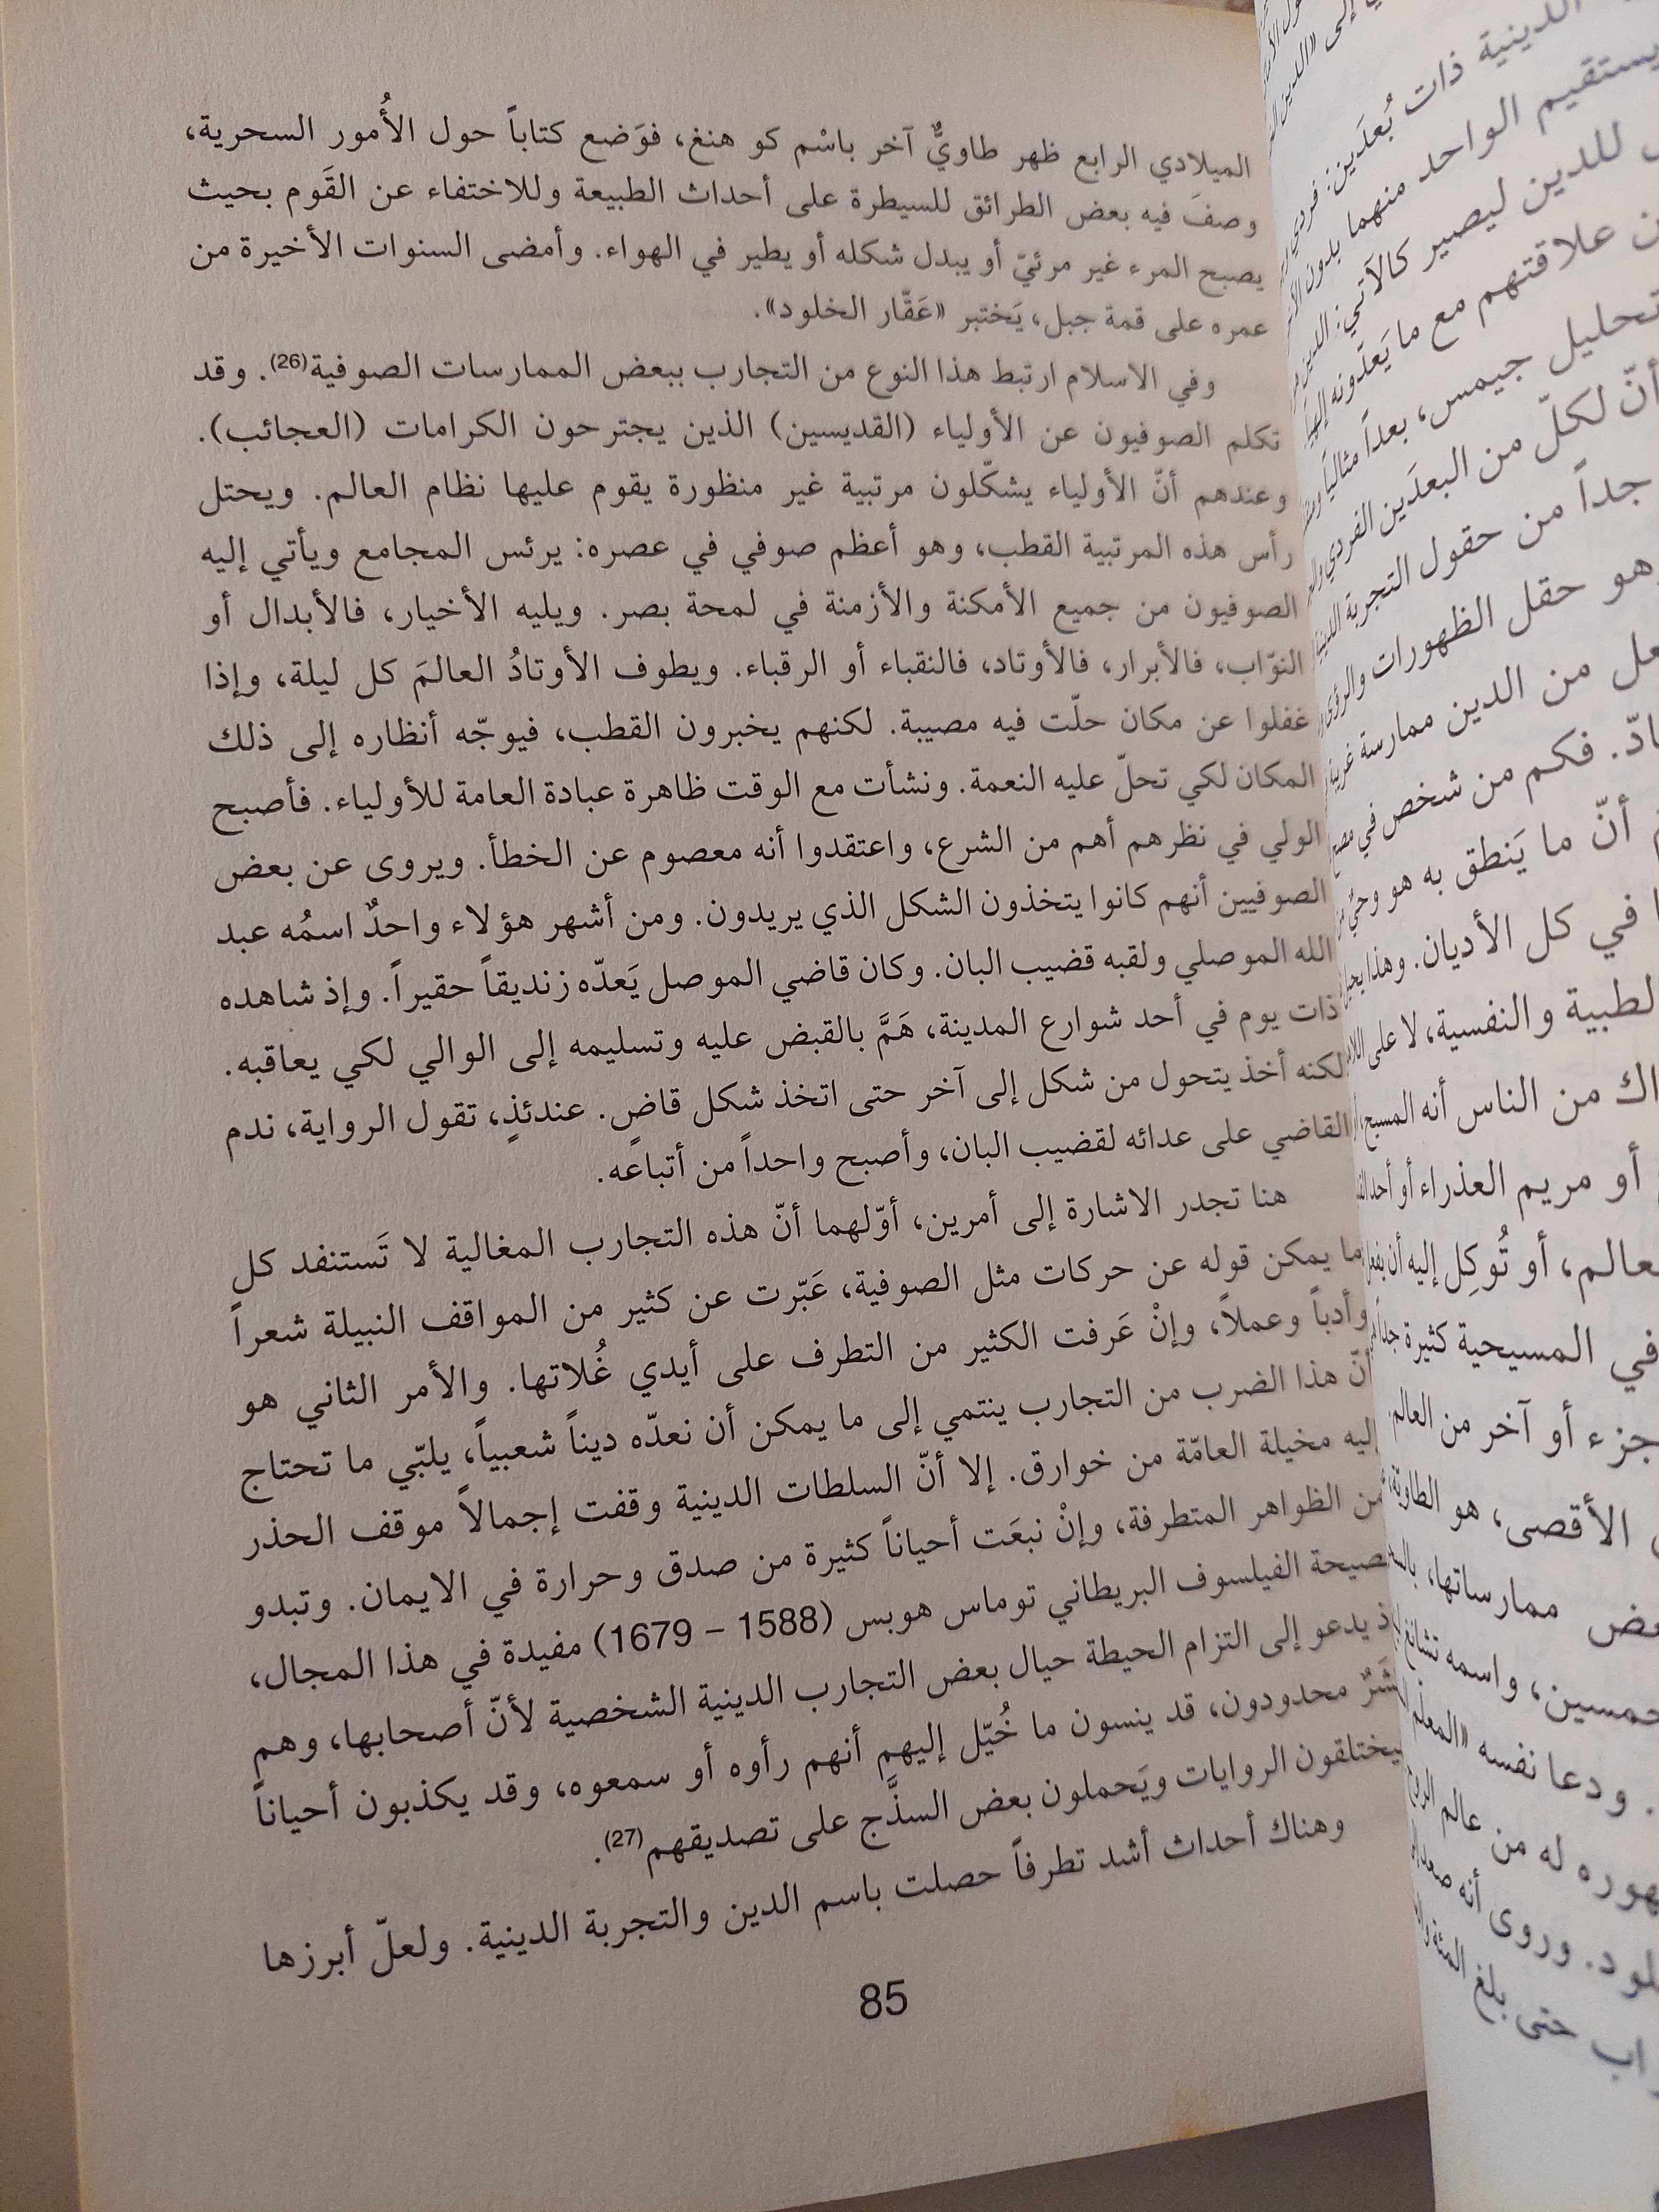 الميلادي الرابع ظهر طاويٌّ آخر باسْم كو هنغ، فوَضع كتاباً حول الأُمور السحرية،
وصفَ فيه بعض الطرائق للسيطرة على أحداث الطبيعة وللاختفاء عن القَوم بحيث
يصبح المرء غير مرئيّ أو يبدل شكله أو يطير في الهواء. وأمضى السنوات الأخيرة من
عمره على قمة جبل، يَختبر «عَقّار الخلود».
وفي الاسلام ارتبط هذا النوع من التجارب ببعض الممارسات الصوفية(26). وقد
تكلم الصوفيون عن الأولياء (القديسين) الذين يجترحون الكرامات (العجائب).
وعندهم أنّ الأولياء يشكّلون مرتبية غير منظورة يقوم عليها نظام العالم. ويحتل
رأس هذه المرتبية القطب، وهو أعظم صوفي في عصره: يرئس المجامع ويأتي إليه
الصوفيون من جميع الأمكنة والأزمنة في لمحة بصر. ويليه الأخيار، فالأبدال أو
النوّاب، فالأبرار، فالأوتاد، فالنقباء أو الرقباء. ويطوف الأوتادُ العالمَ كل ليلة، وإذا
غفلوا عن مكان حلّت فيه مصيبة. لكنهم يخبرون القطب، فيوجّه أنظاره إلى ذلك
المكان لكي تحلّ عليه النعمة. ونشأت مع الوقت ظاهرة عبادة العامة للأولياء. فأصبح
الولي في نظرهم أهم من الشرع، واعتقدوا أنه معصوم عن الخطأ. ويروى عن بعض
الصوفيين أنهم كانوا يتخذون الشكل الذي يريدون. ومن أشهر هؤلاء واحدٌ اسمُه عبد
الله الموصلي ولقبه قضيب البان. وكان قاضي الموصل يَعدّه زنديقاً حقيراً. وإذ شاهده
ذات يوم في أحد شوارع المدينة، هَمَّ بالقبض عليه وتسليمه إلى الوالي لكي يعاقبه.
لكنه أخذ يتحول من شكل إلى آخر حتى اتخذ شكل قاضٍ. عندئذٍ، تقول الرواية، ندم
القاضي على عدائه لقضيب البان، وأصبح واحداً من أتباعه.
هنا تجدر الاشارة إلى أمرين، أوّلهما أنّ هذه التجارب المغالية لا تَستنفد كل
ما يمكن قوله عن حركات مثل الصوفية، عَبّرت عن كثير من المواقف النبيلة شعراً
وأدباً وعملاً، وإنْ عَرفت الكثير من التطرف على أيدي غُلاتها. والأمر الثاني هو
أنّ هذا الضرب من التجارب ينتمي إلى ما يمكن أن نعدّه ديناً شعبياً، يلبّي ما تحتاج
إليه مخيلة العامّة من خوارق. إلا أنّ السلطات الدينية وقفت إجمالاً موقف الحذر
من الظواهر المتطرفة، وإنْ نبعَت أحياناً كثيرة من صدق وحرارة في الايمان. وتبدو
نصيحة الفيلسوف البريطاني توماس هوبس (1588 – 1679) مفيدة في هذا المجال،
إذ يدعو إلى التزام الحيطة حيال بعض التجارب الدينية الشخصية لأنّ أصحابها، وهم
بَشَرٌ محدودون، قد ينسون ما خُيّل إليهم أنهم رأوه أو سمعوه، وقد يكذبون أحياناً
فيختلقون الروايات ويَحملون بعض السذَّج على تصديقهم(27).
وهناك أحداث أشد تطرفاً حصلت باسم الدين والتجربة الدينية. ولعلّ أبرزها
85
الدينية ذات بُعدَين: فردي
يستقيم الواحد منهما بدون
للدين ليصير كالآتي:
علاقتهم مع ما يَعدّونه
تحليل جيمس، بعداً مثالياً
أنّ لكلّ من البعدَين الفردي
جداً من حقول التجربة
وهو حقل الظهورات والرؤى
من الدين ممارسة غريبة
فكم من شخص في
أنّ ما يَنطق به هو وحيٌ
في كل الأديان. وهذا
الطبية والنفسية، لا على
من الناس أنه المسيح
أو مريم العذراء أو أحد
أو تُوكِل إليه أن
في المسيحية كثيرة
جزء أو آخر من العالم.
الأقصى، هو
ممارساتها،
واسمه
ودعا نفسه «المعلّم
له من عالم
وروى أنه
حتى بلغ